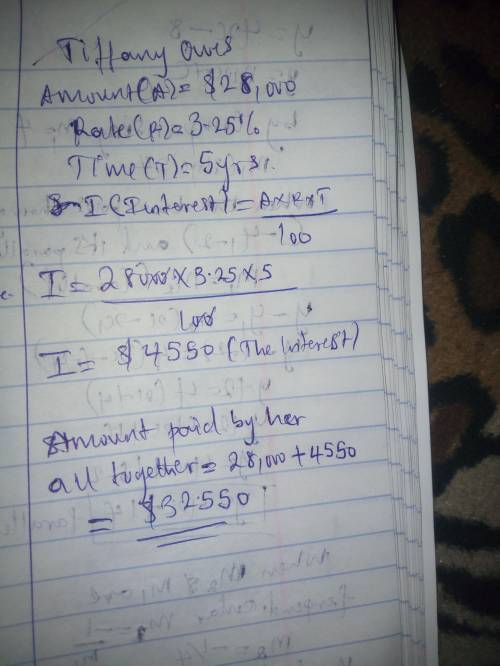 Tiffany owes
Amount(A)= $28,000
Rate(R)=3.25%
Time(T)=5yrs.
I(Interest)= AxRxT
100
I= 28000x3.25x5
100
I= $4550 (The Interest)
Amount paid by her
all together= 28,000+4550
= $32550